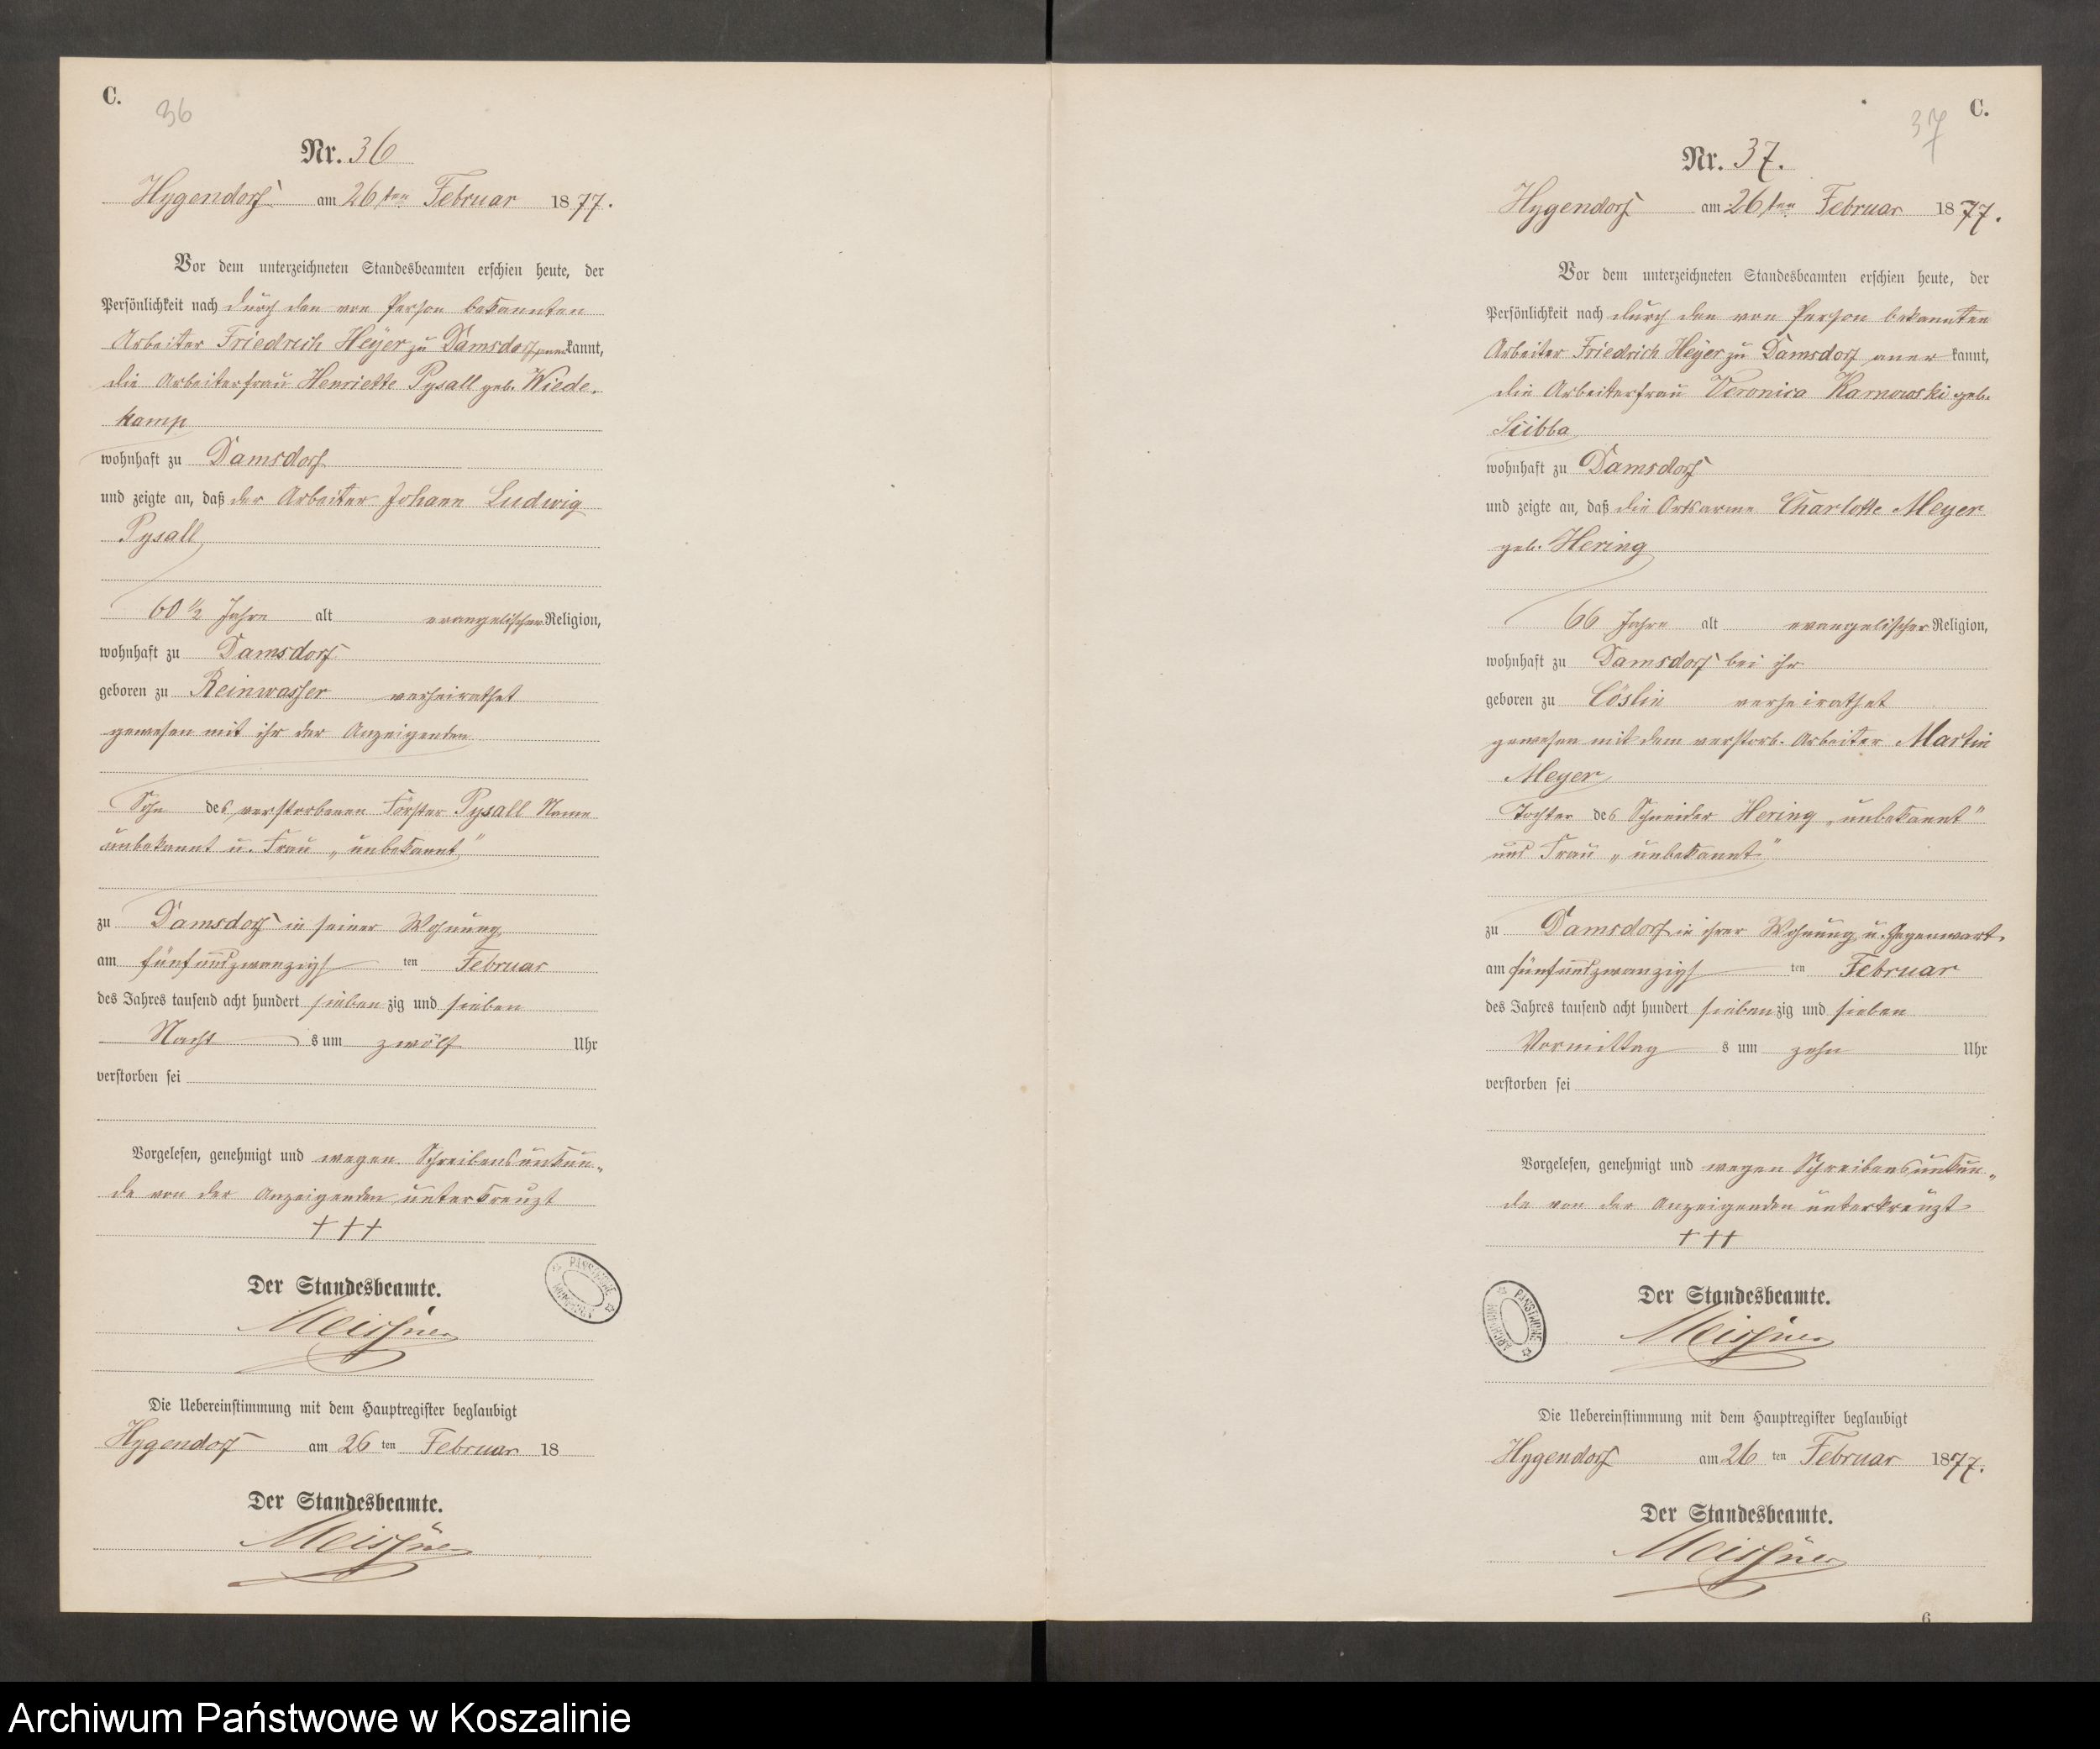 C.
36
Nr. 36
Hygendorf am 26ten Februar 1877.
Vor dem unterzeichneten Standesbeamten erschien heute, der
Persönlichkeit nach durch den von Person bekannten
Arbeiter Friedrich Heyer zu Damsdorf anerkannt,
die Arbeiterfrau Henriette Pysall geb. Wiede-
kamp
wohnhaft zu Damsdorf
und zeigte an, daß der Arbeiter Johann Ludwig
Pysall
60 1/2 Jahre alt evangelischer Religion,
wohnhaft zu Damsdorf
geboren zu Reinwasser verheirathet
gewesen mit ihr der Anzeigenden
Sohn des verstorbenen Förster Pysall Name
unbekannt u. Frau „unbekannt"
zu Damsdorf in seiner Wohnung
am fünfundzwanzigsten Februar
des Jahres tausend acht hundert siebenzig und sieben
Nachts um zwölf Uhr
verstorben sei
Vorgelesen, genehmigt und wegen Schreibensunkun-
de von der Anzeigenden unterkreuzt
+++
Der Standesbeamte.
Meissner
PAŃSTWOWE ARCHIWUM
Die Uebereinstimmung mit dem Hauptregister beglaubigt
Hygendorf am 26ten Februar 18
Der Standesbeamte.
Meissner
C.
37
Nr. 37.
Hygendorf am 26ten Februar 1877.
Vor dem unterzeichneten Standesbeamten erschien heute, der
Persönlichkeit nach durch den von Person bekannten
Arbeiter Friedrich Heyer zu Damsdorf anerkannt,
die Arbeiterfrau Veronica Karnowski geb.
Scibba
wohnhaft zu Damsdorf
und zeigte an, daß die Ortsarme Charlotte Meyer
geb. Hering
66 Jahre alt evangelischer Religion,
wohnhaft zu Damsdorf bei ihr
geboren zu Cöslin verheirathet
gewesen mit dem verstorb. Arbeiter Martin
Meyer
Tochter des Schneider Hering „unbekannt"
und Frau „unbekannt"
zu Damsdorf in ihrer Wohnung u. Gegenwart
am fünfundzwanzigsten Februar
des Jahres tausend acht hundert siebenzig und sieben
Vormittags um zehn Uhr
verstorben sei
Vorgelesen, genehmigt und wegen Schreibensunkun-
de von der Anzeigenden unterkreuzt
+++
Der Standesbeamte.
Meissner
PAŃSTWOWE ARCHIWUM
Die Uebereinstimmung mit dem Hauptregister beglaubigt
Hygendorf am 26ten Februar 1877.
Der Standesbeamte.
Meissner
6
Archiwum Państwowe w Koszalinie